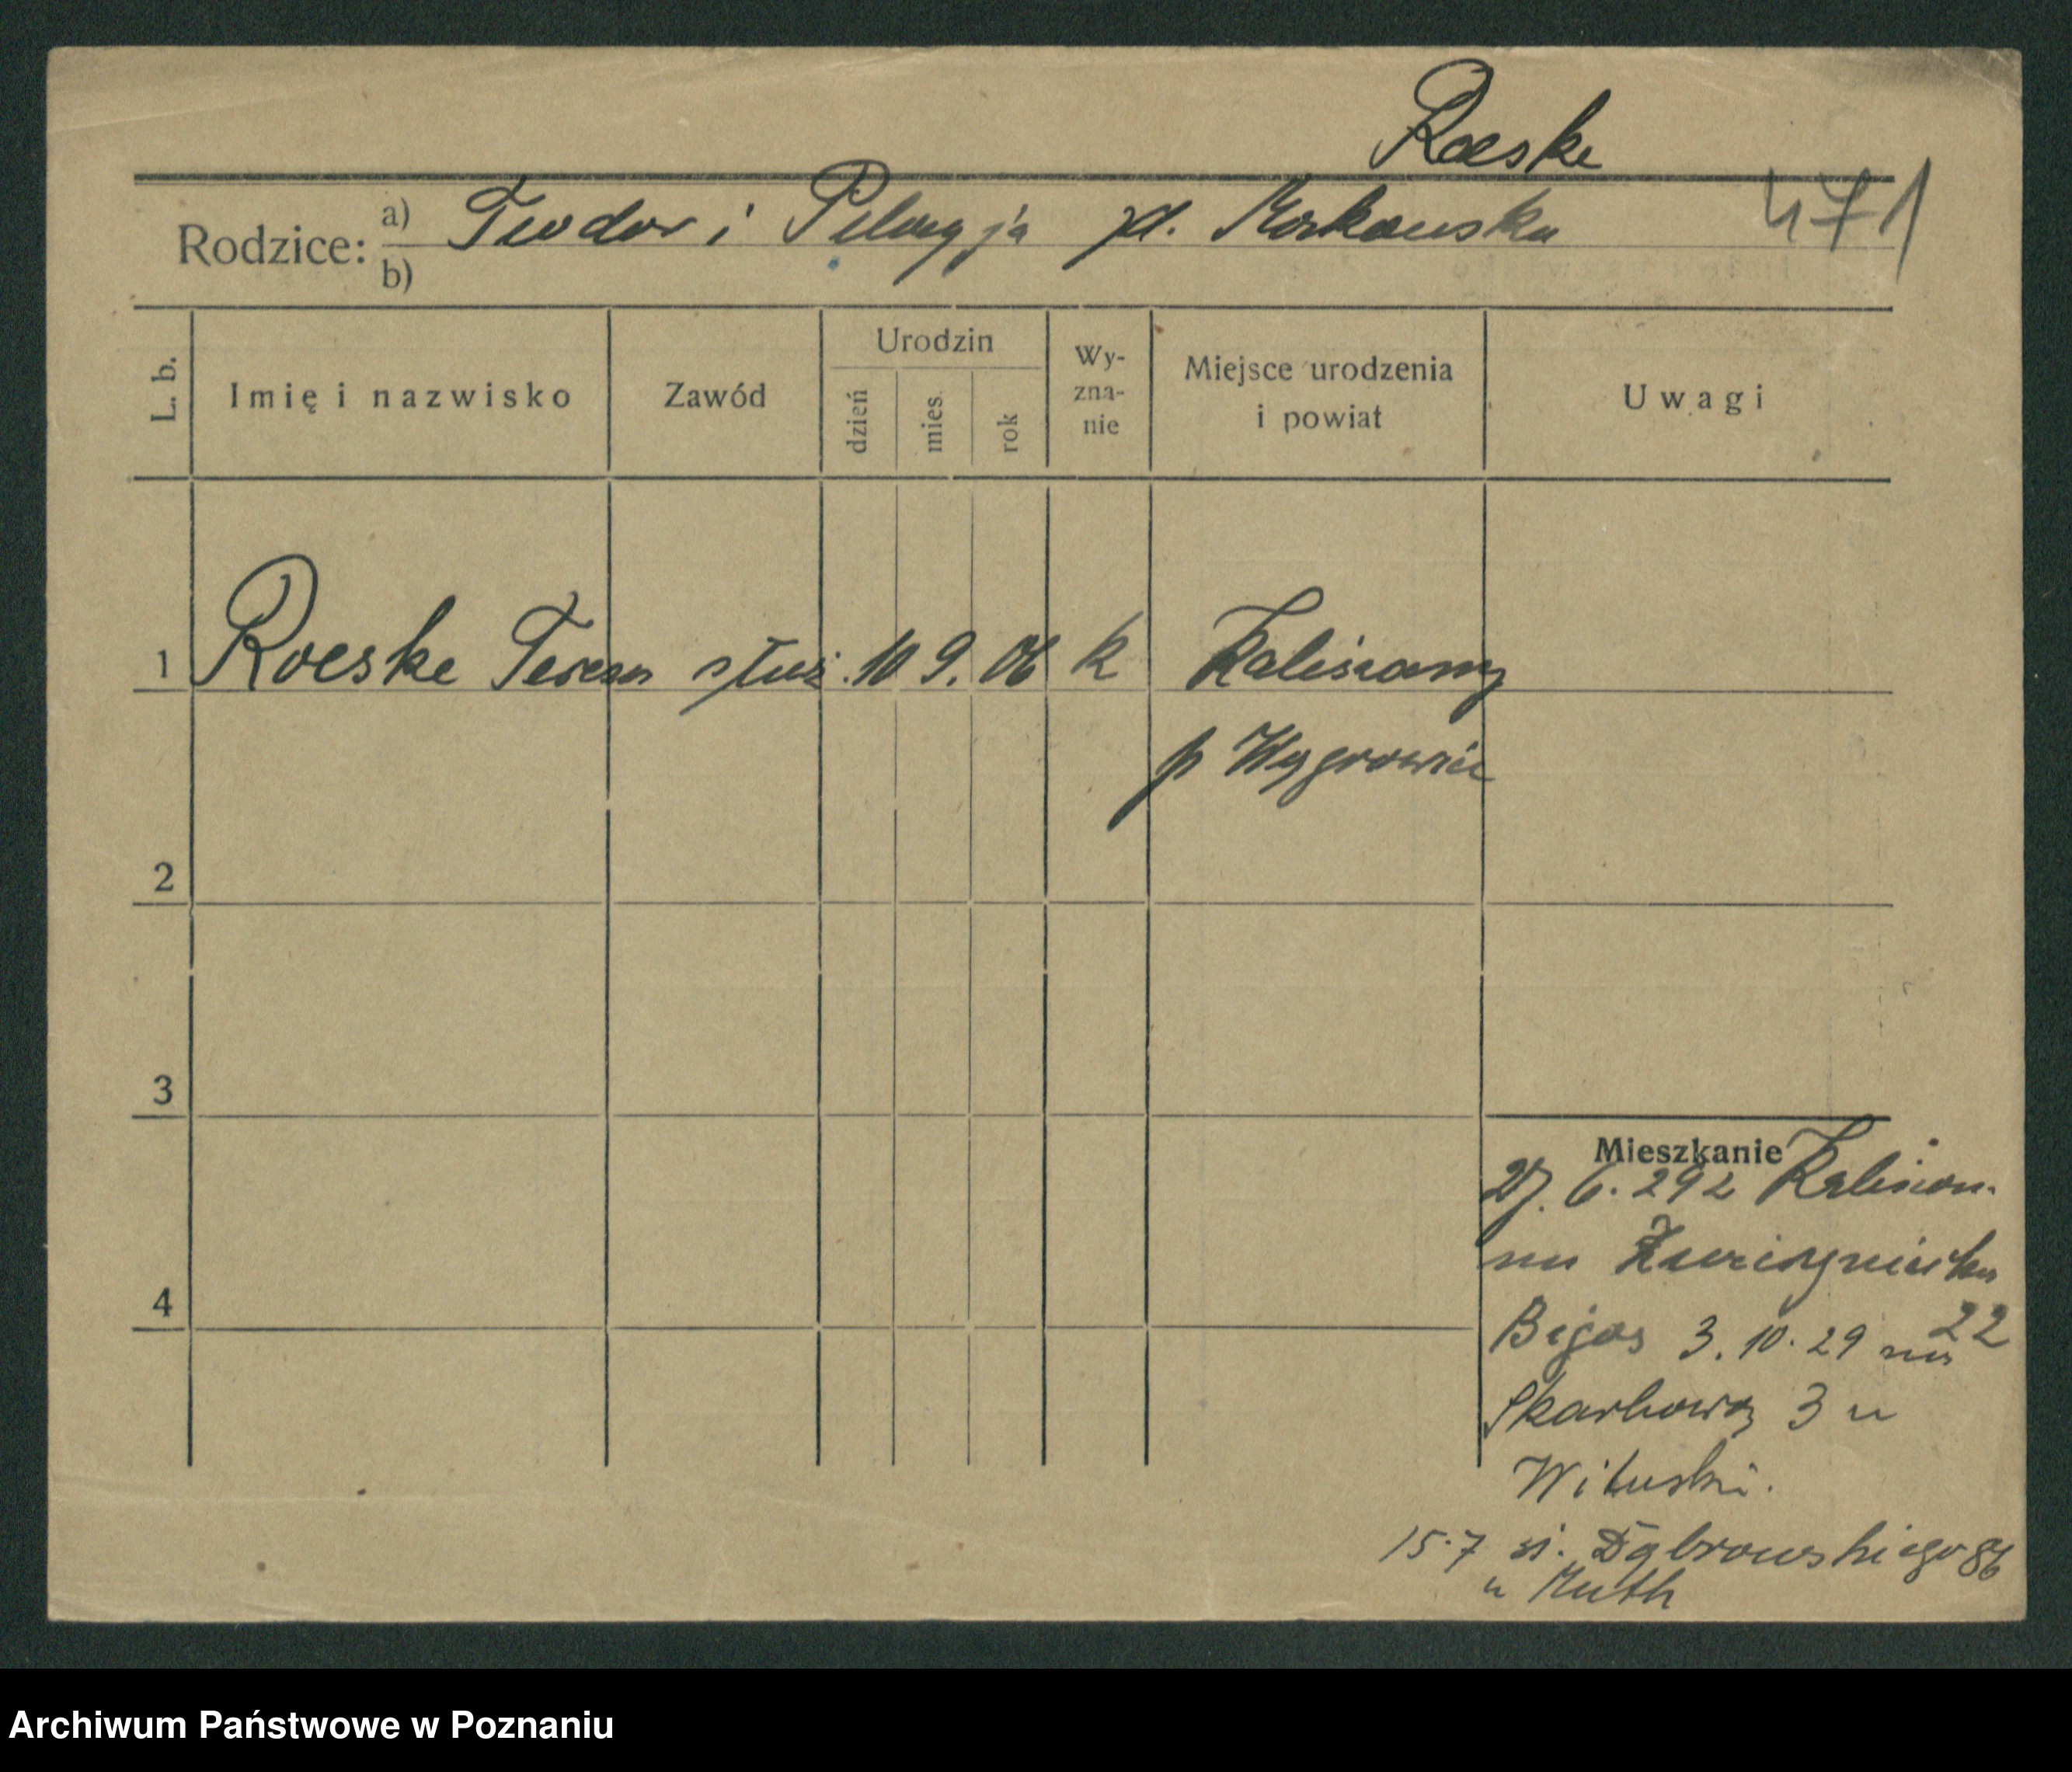 Roeske
471
Rodzice: a) Teodor i Pelagja zd. Korkowska
b)
L. b.
Imię i nazwisko
Zawód
Urodzin
dzień
mies.
rok
Wy-
zna-
nie
Miejsce urodzenia
i powiat
Uwagi
1 Roeske Teresa służ. 10 9. 06 k Kaliszany
p Wągrowiec
2
3
4
Mieszkanie
27. 6. 29 z Kaliszan.
na 22
Bigos 3. 10. 29 na
Skarbową 3 u
Wituski.
15.7 Dąbrowskiego 86
u Muth
Archiwum Państwowe w Poznaniu